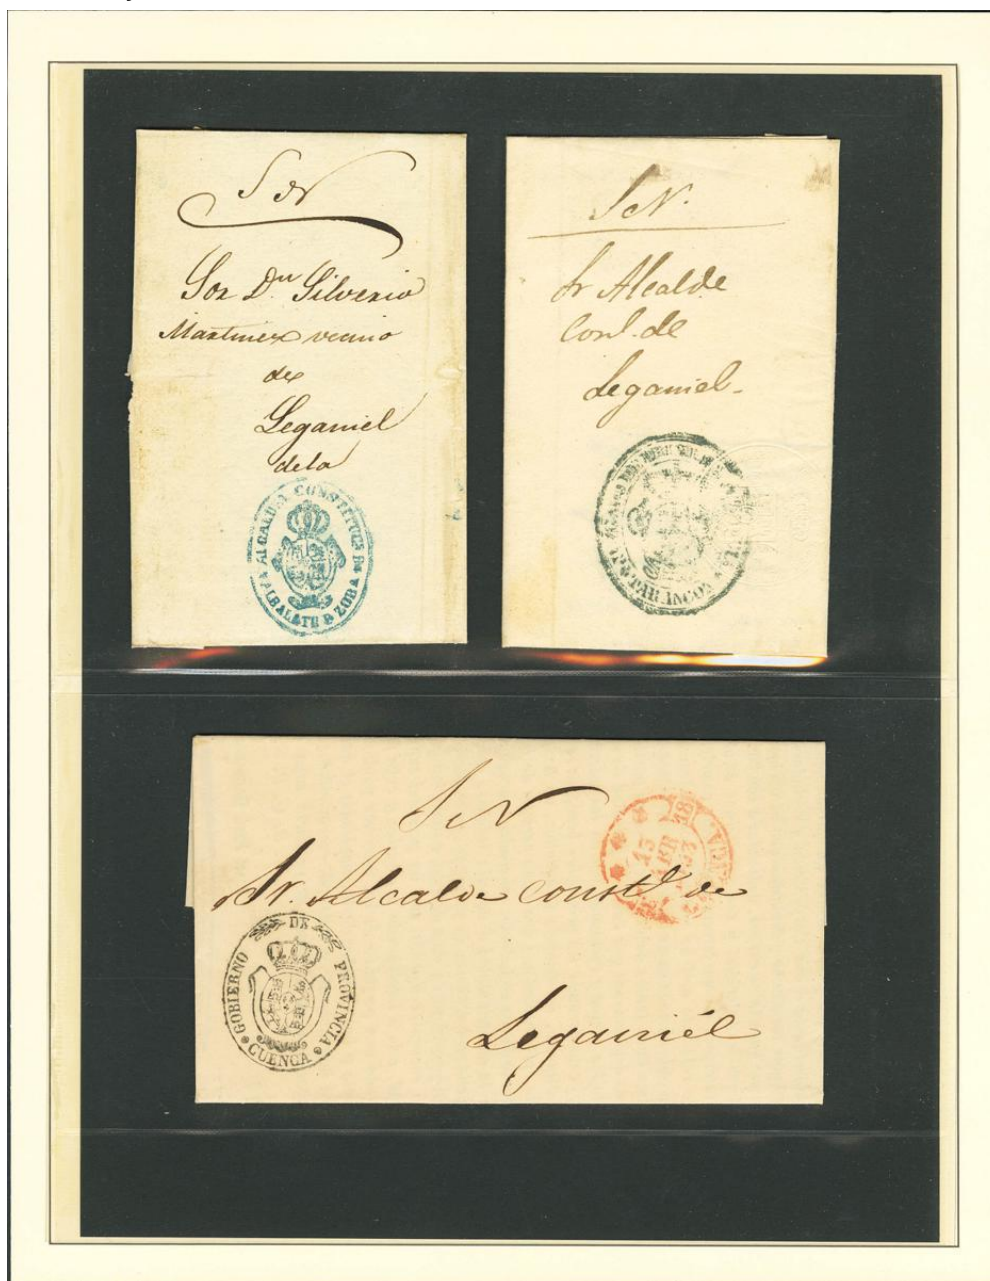 S N
Sor Dn Silverio
Martinez vecino
de
Leganiel
dela
ALCALDIA CONSTITUCL DE
ALBALATE D ZORA
S N.
Sr Alcalde
Conl. de
Leganiel.
DE TARANCON
S N
Sr. Alcalde constl de
Leganiél
GOBIERNO DE PROVINCIA
CUENCA
15